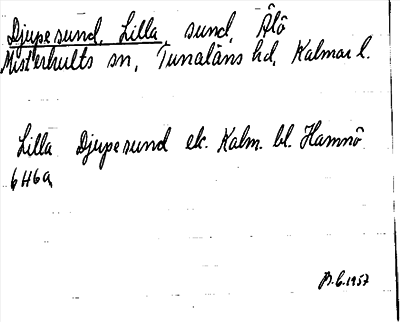 Djupesund, Lilla sund, Älö
Misterhults sn, Tunaläns hd, Kalmar l.
Lilla Djupesund ek. Kalm. bl. Hamnö
6H6a
B.L. 1957